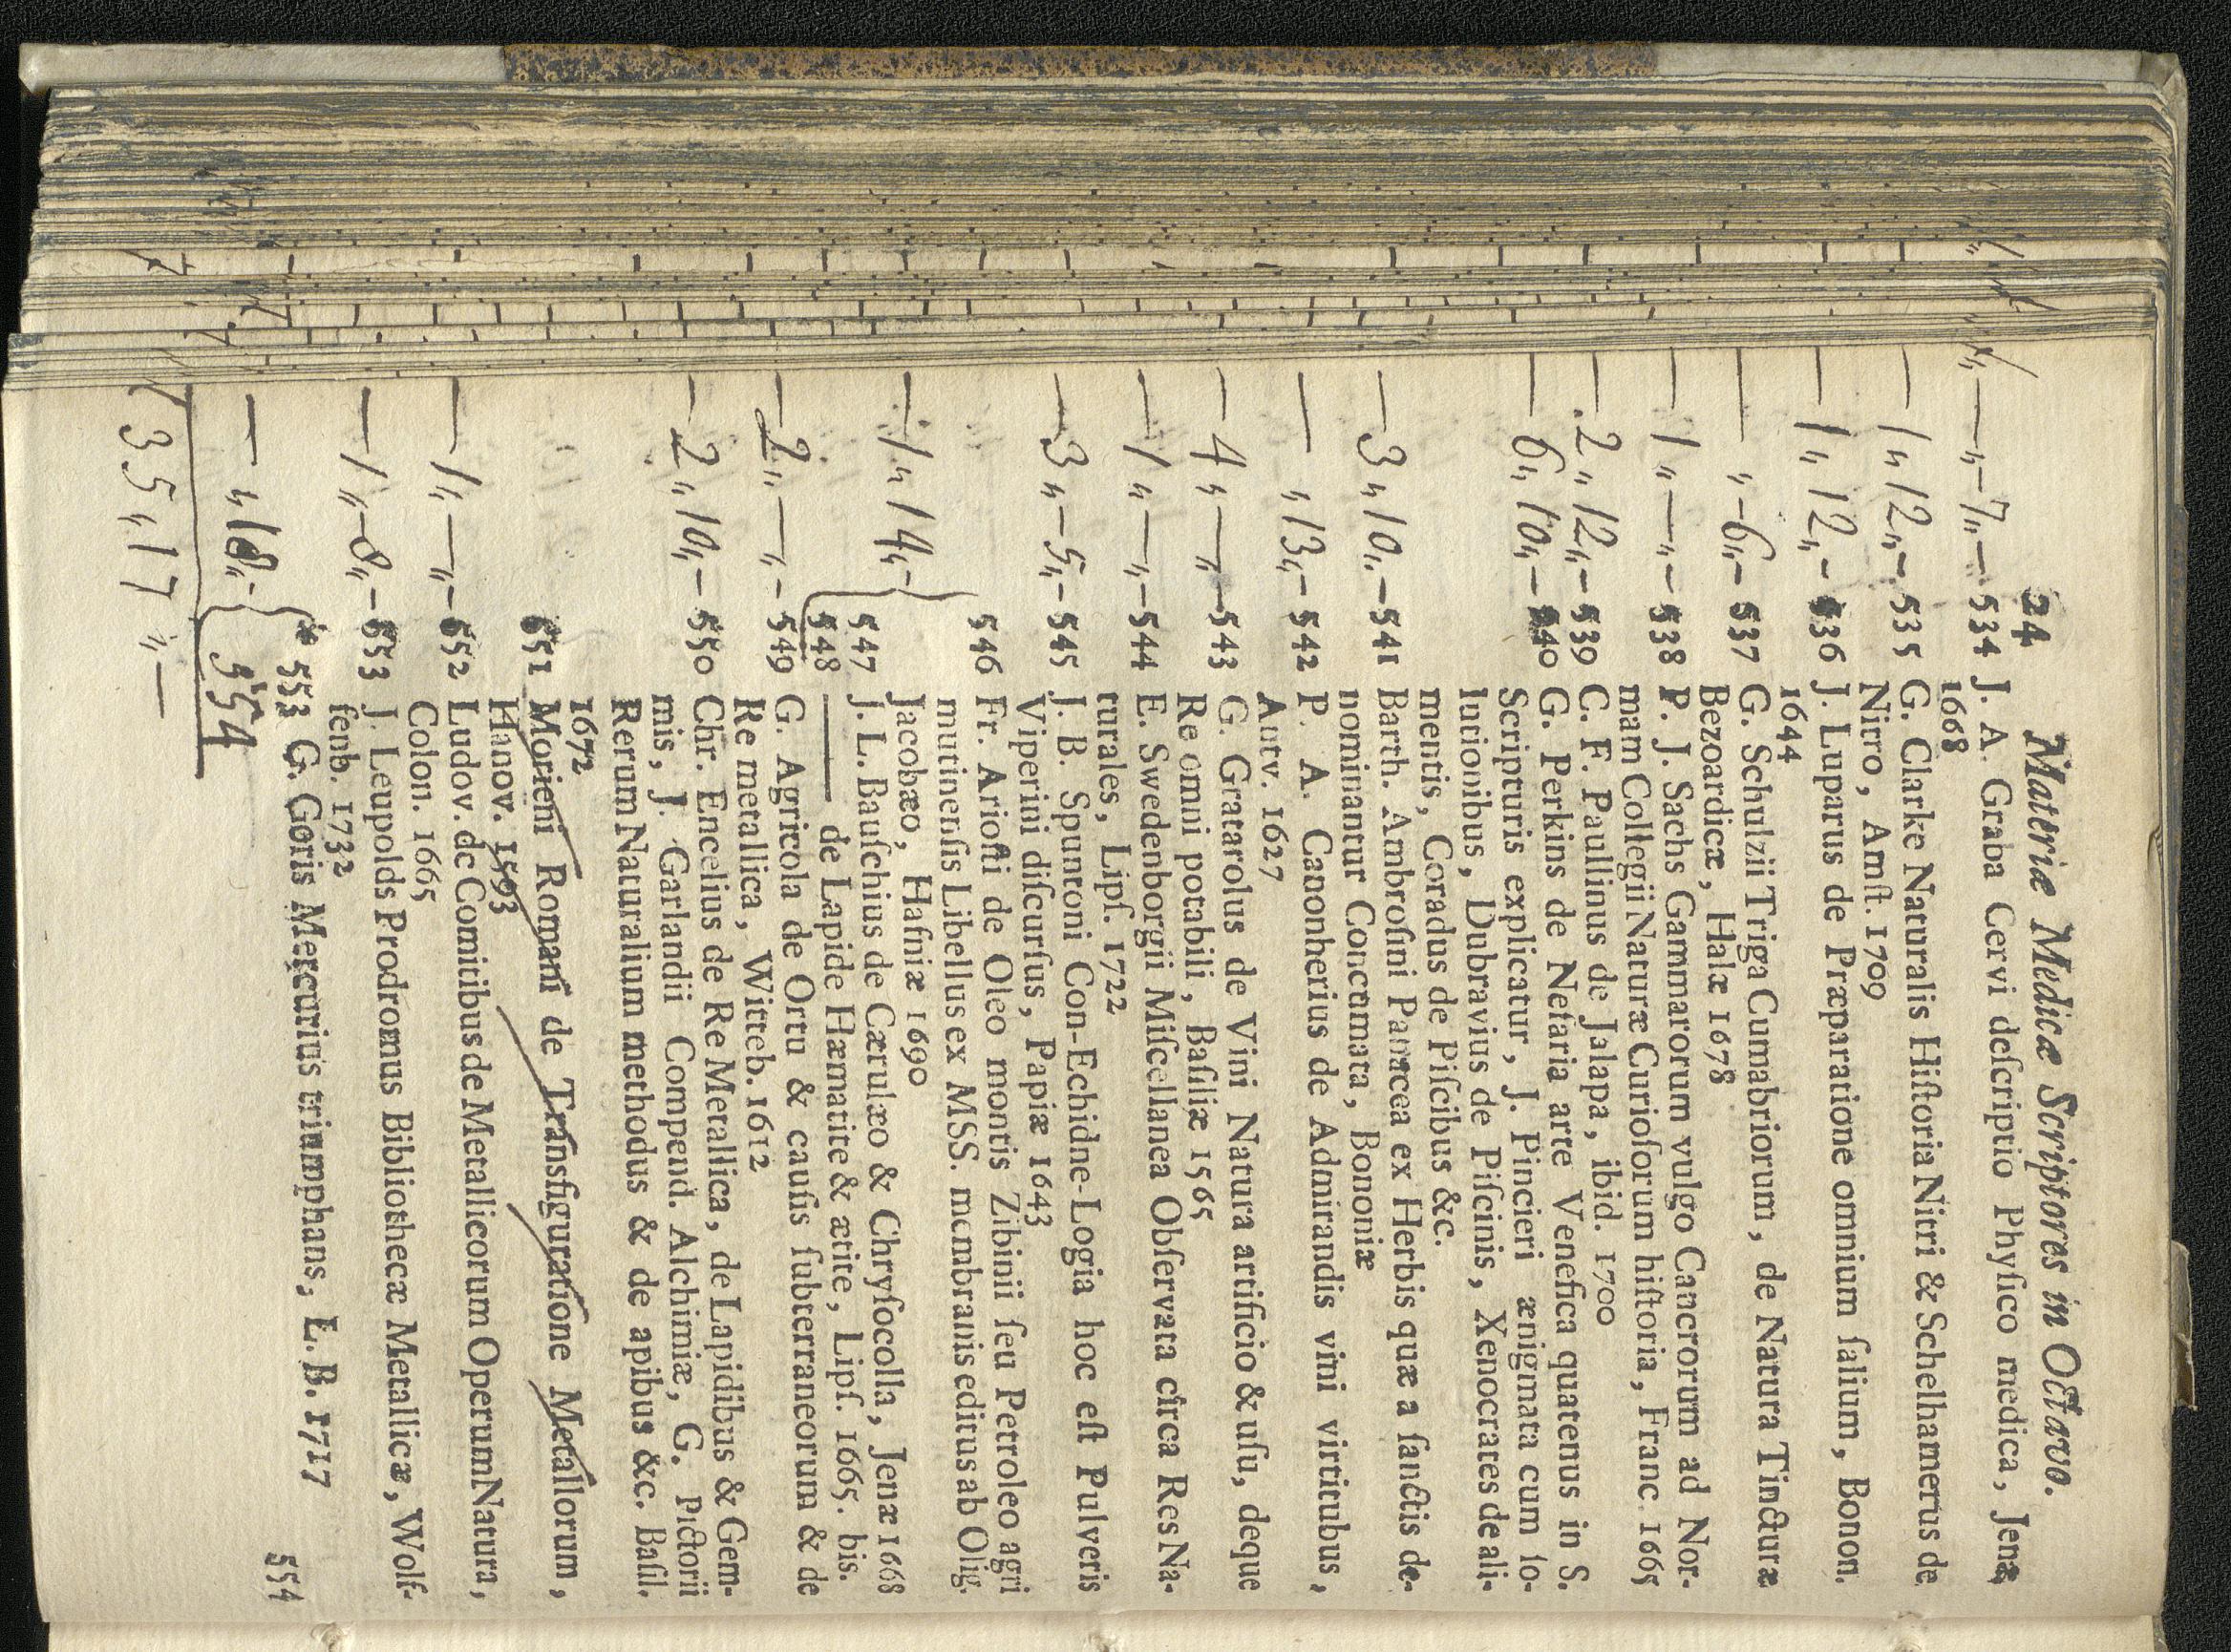 24 Materiæ Medicæ Scriptores in Octavo.
— „ — 7 „ — 534 J. A. Graba Cervi deſcriptio Phyſico medica, Jenæ
1668
— 1 „ 12 „ - 535 G. Clarke Naturalis Hiſtoria Nitri & Schelhamerus de
Nitro, Amſt. 1709
— 1 „ 12 „ - 536 J. Luparus de Præparatione omnium ſalium, Bonon.
1644
— „ - 6 „ - 537 G. Schulzii Triga Cumabriorum, de Natura Tincturæ
Bezoardicæ, Halæ 1678
— 1 „ — „ - 538 P. J. Sachs Gammarorum vulgo Cancrorum ad Nor-
mam Collegii Naturæ Curioſorum hiſtoria, Franc. 1665
— 2 „ 12 „ - 539 C. F. Paullinus de Jalapa, ibid. 1700
— 6 „ 10 „ — 540 G. Perkins de Nefaria arte Venefica quatenus in S.
Scripturis explicatur, J. Pincieri ænigmata cum ſo-
lutionibus, Dubravius de Piſcinis, Xenocrates de ali-
mentis, Coradus de Piſcibus &c.
— 3 „ 10 „ - 541 Barth. Ambroſini Panacea ex Herbis quæ a ſanctis de-
nominantur Concumata, Bononiæ
— „ 13 „ - 542 P. A. Canonherius de Admirandis vini virtitubus,
Antv. 1627
— 4 „ — „ - 543 G. Gratarolus de Vini Natura artificio & uſu, deque
Re omni potabili, Baſiliæ 1565
— 1 „ — „ - 544 E. Swedenborgii Miſcellanea Obſervata circa Res Na-
turales, Lipſ. 1722
— 3 „ — 5 „ - 545 J. B. Spuntoni Con-Echidne-Logia hoc eſt Pulveris
Viperini diſcurſus, Papiæ 1643
546 Fr. Arioſti de Oleo montis Zibinii ſeu Petroleo agri
mutinenſis Libellus ex MSS. membranis editus ab Olig.
Jacobæo, Hafniæ 1690
— 1 „ 14 „ - 547 J. L. Bauſchius de Cærulæo & Chryſocolla, Jenæ 1668
548 —— de Lapide Hæmatite & ætite, Lipſ. 1665. bis.
— 2 „ — „ - 549 G. Agricola de Ortu & cauſis ſubterraneorum & de
Re metallica, Witteb. 1612
— 2 „ 10 „ - 550 Chr. Encelius de Re Metallica, de Lapidibus & Gem-
mis, J. Garlandii Compend. Alchimiæ, G. Pictorii
Rerum Naturalium methodus & de apibus &c. Baſil.
1672
551 Morieni Romani de Transfiguratione Metallorum,
Hanov. 1593
— 1 „ — „ - 552 Ludov. de Comitibus de Metallicorum Operum Natura,
Colon. 1665
— 1 „ — 8 „ - 553 J. Leupolds Prodromus Bibliothecæ Metallicæ, Wolf-
fenb. 1732
* 553 G. Goris Mercurius triumphans, L. B. 1717
— „ 18 „ - 554
554
35 „ 17 „ —